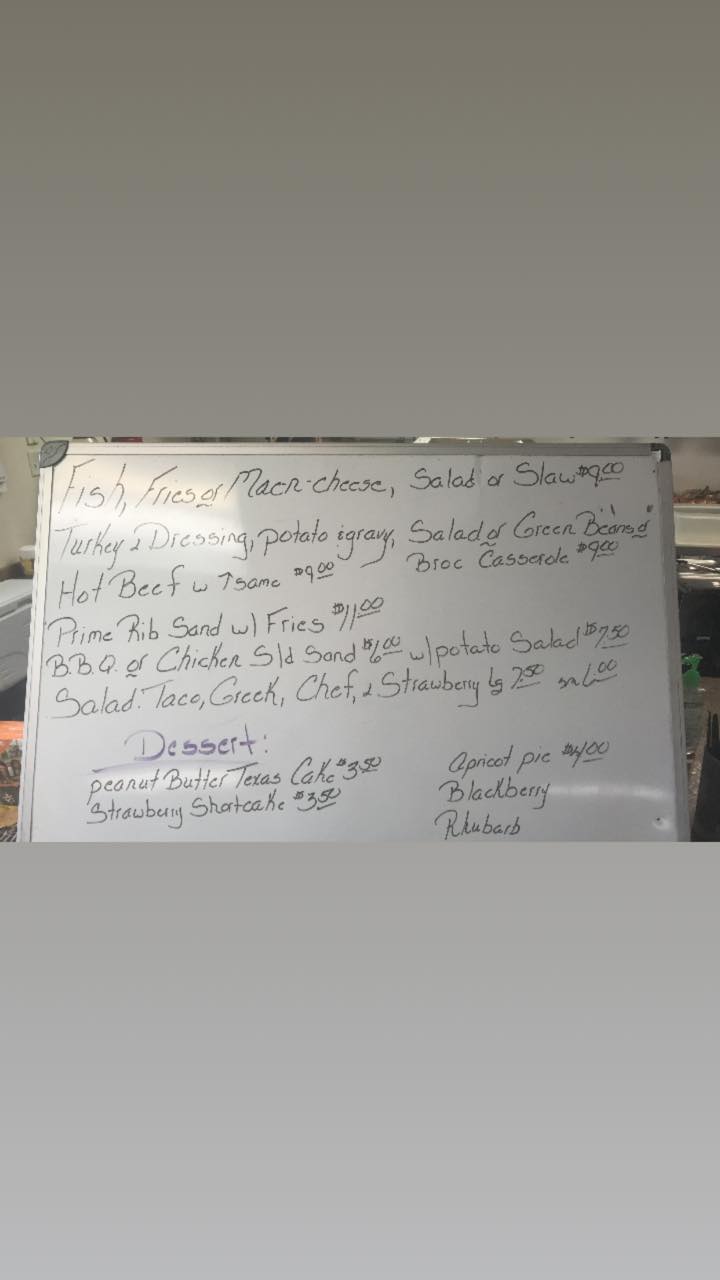 Fish, Fries or Macn-cheese, Salad or Slaw $9.00
Turkey & Dressing, potato & gravy, Salad or Green Beans or
Broc Casserole $9.00
Hot Beef w ↑ same $9.00
Prime Rib Sand w/ Fries $11.00
B.B.Q. or Chicken Sld Sand $6.00 w/potato Salad $7.50
Salad: Taco, Greek, Chef, & Strawberry lg 7.50 sm 6.00
Dessert:
peanut Butter Texas Cake $3.50
Strawberry Shortcake $3.50
Apricot pie $4.00
Blackberry
Rhubarb